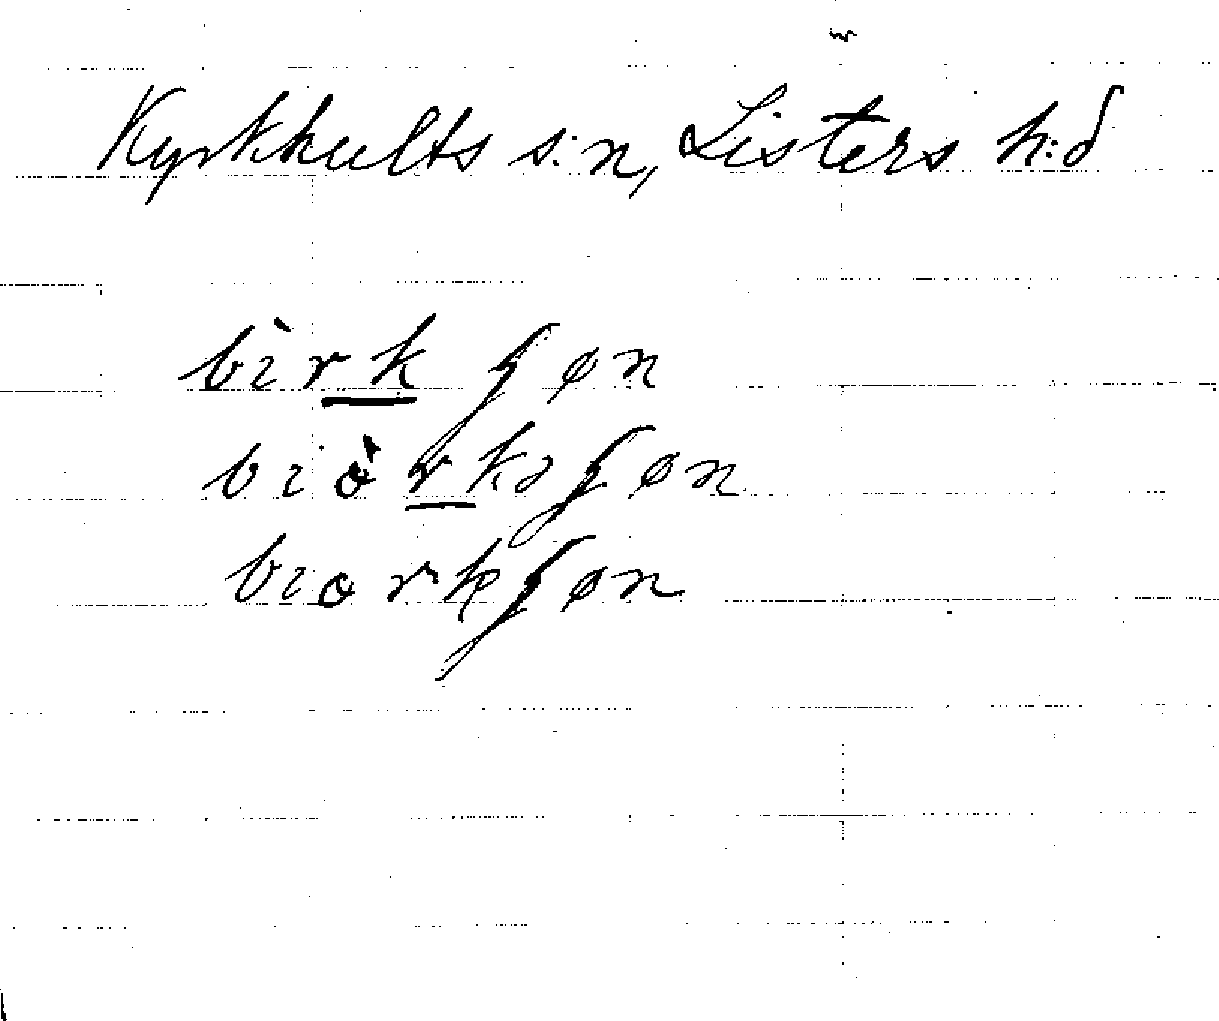 Kyrkhults s:n, Listers h:d
bìrkʃøn
biòrkəʃøn
biorkʃøn